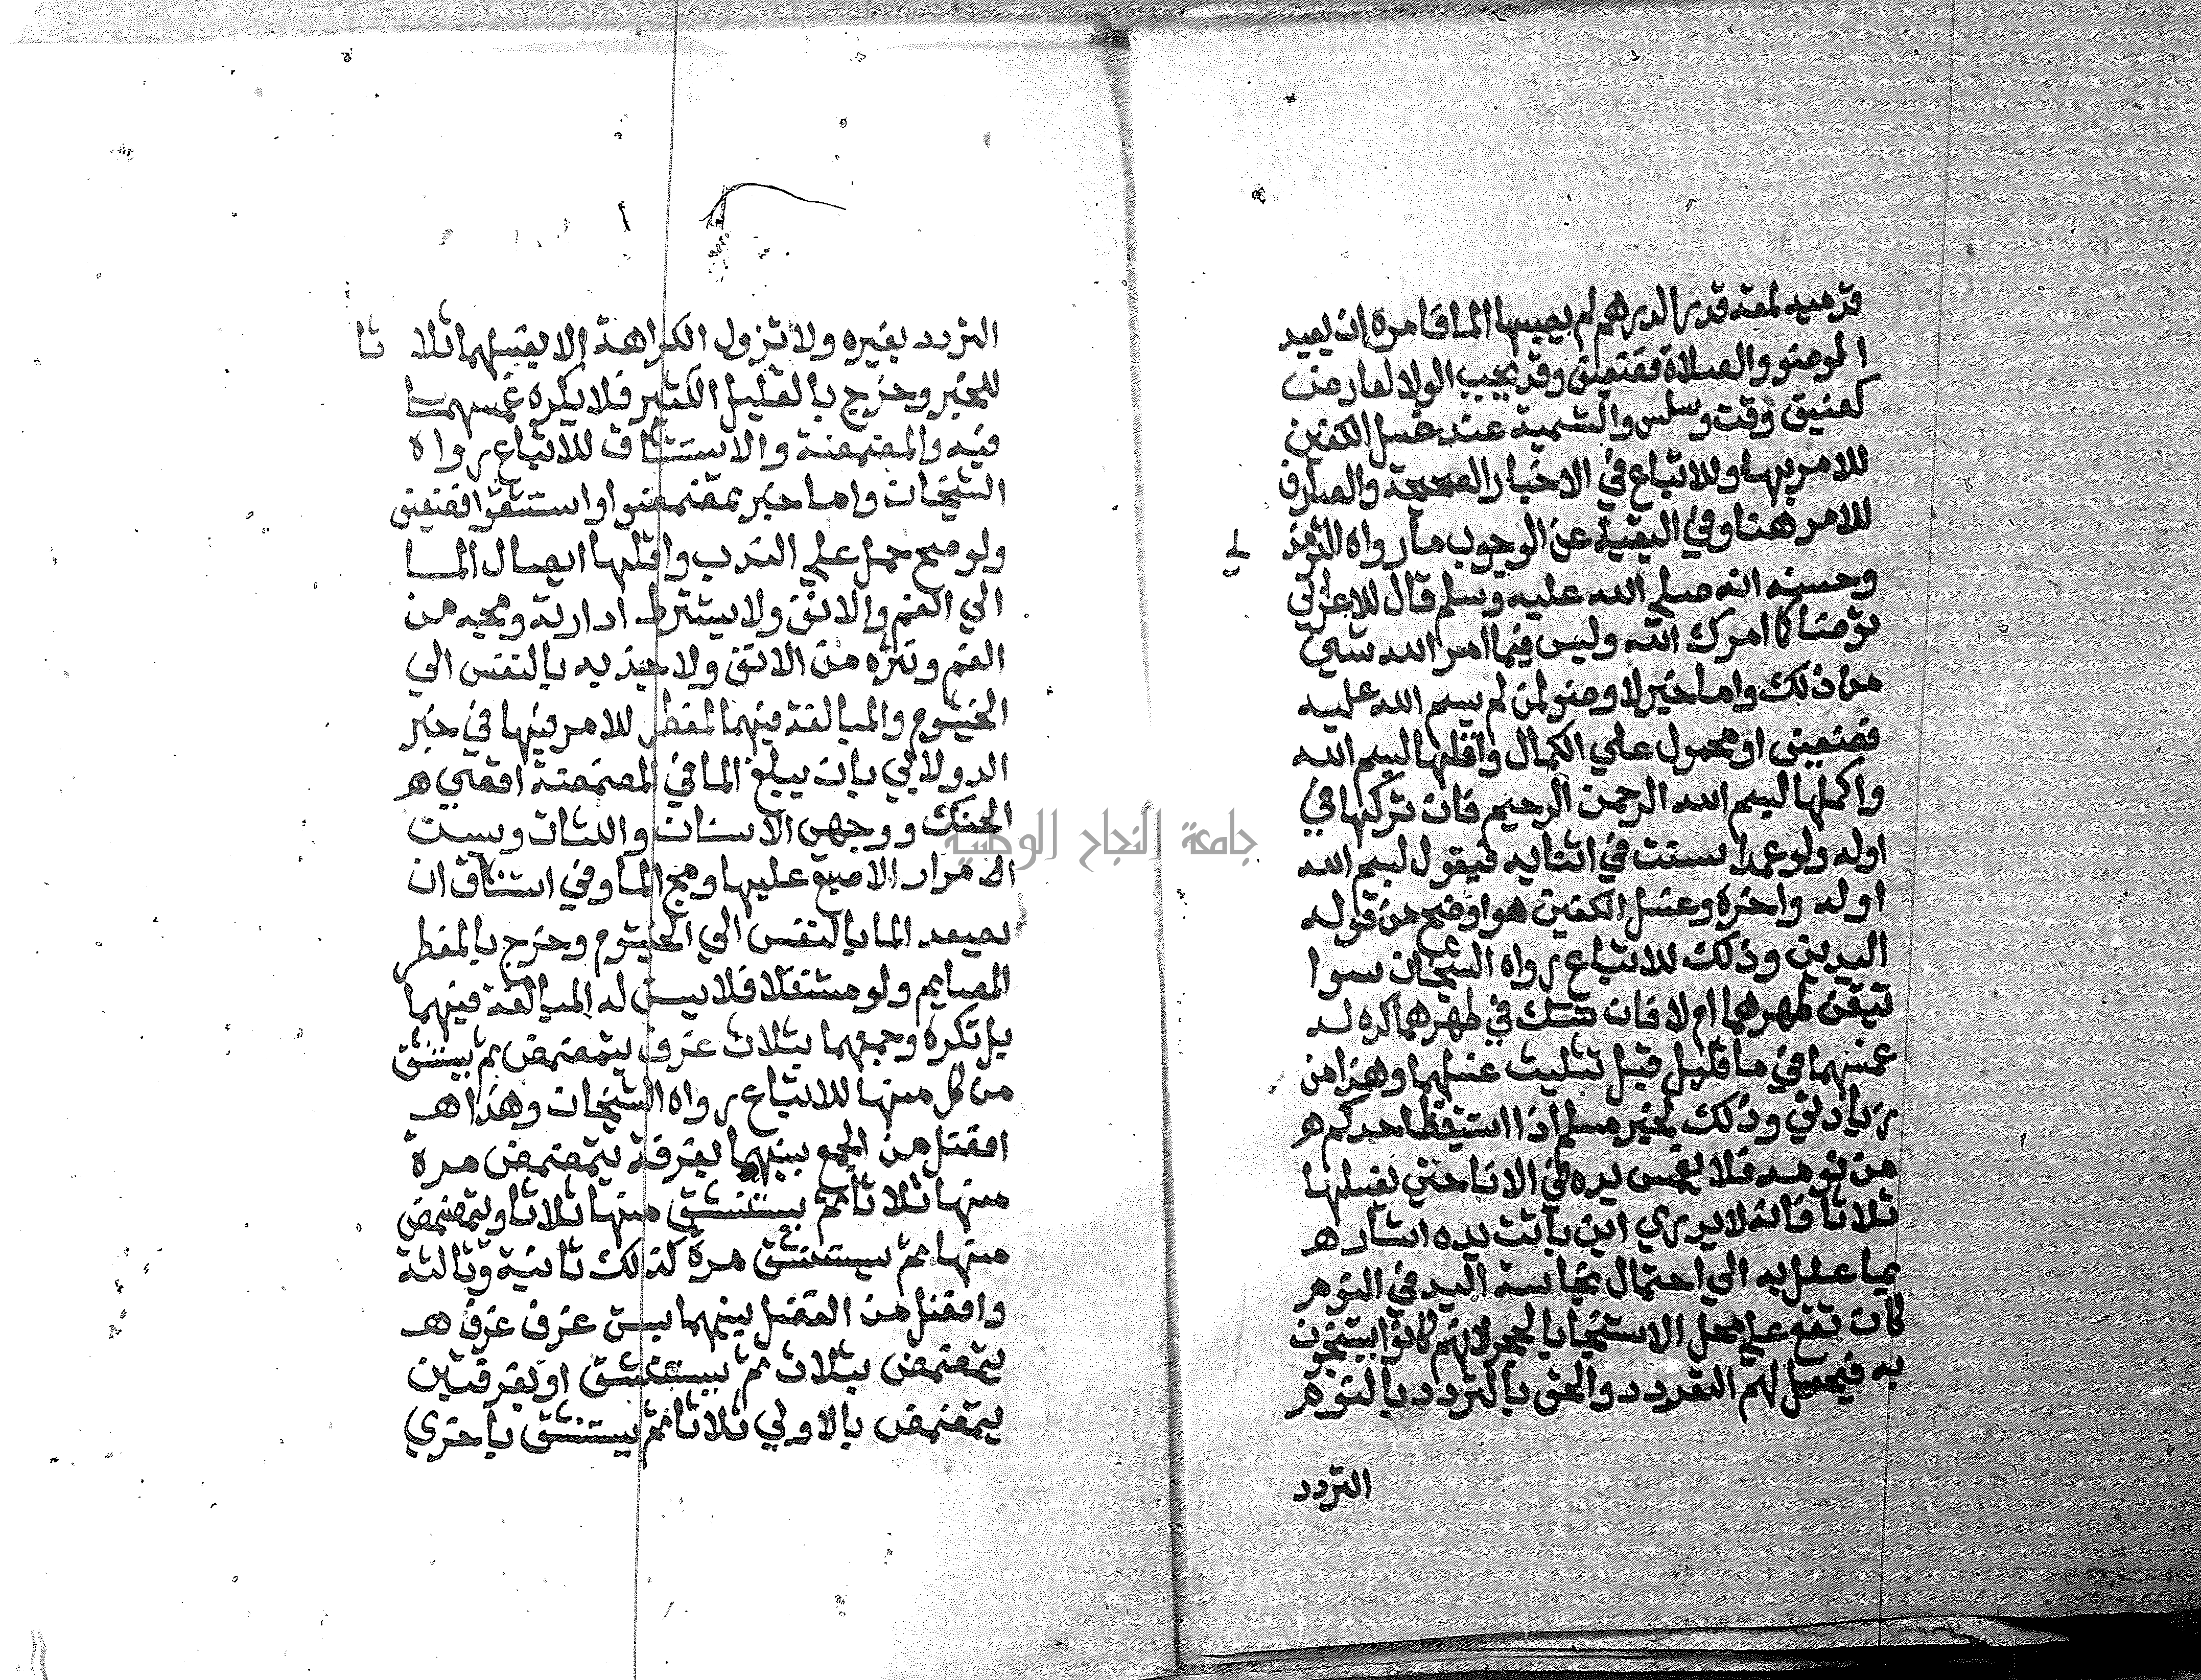 قدميه لمعة قدر الدرهم لم يصبها الما فامره ان يعيد
الوضو والصلاة فضعيف وقد يجب الولا لعارض
كضيق وقت وسلس والتسمية عند غسل الكفين
للامر بها وللاتباع في الاخبار الصحيحة والصارف
للامر هنا وفي البقية عن الوجوب ما رواه الترمذ
ي
وحسنه انه صلي الله عليه وسلم قال للاعرابي
توضا كما امرك الله وليس فيما امر الله شي
من ذلك واما خبر لا وضو لمن لم يسم الله عليه
فضعيف او محمول علي الكمال واقلها بسم الله
واكملها بسم الله الرحمن الرحيم فان تركها في
اوله ولو عمدا سنت في اثنايه فيقول بسم الله
اوله واخره وغسل الكفين هو اوضح من قوله
اليدين وذلك للاتباع رواه الشيخان سوا
تيقن طهرهما ام لا فان شك في طهرهما كره له
غمسهما في ما قليل قبل تثليث غسلهما وهذا من
زيادتي وذلك لخبر مسلم اذا استيقظ احدكم ه
من نومه فلا يغمس يده في الانا حتي يغسلها
ثلاثا فانه لا يدري اين باتت يده اشار ه
بما علل به الي احتمال نجاسة اليد في النوم
كان تقع علي محل الاستنجا بالحجر لانهم كانوا يستنجون
به فيحصل لهم التردد والحق بالتردد بالنوم
التردد
التردد بغيره ولا تزول الكراهة الا بغسلهما ثلا ثا
للخبر وخرج بالقليل الكثير فلا يكره غمسهما
فيه والمضمضة والاستنشاق للاتباع رواه
الشيخان واما خبر تمضمضوا واستنشقوا فضعيف
ولو صح حمل علي الندب واقلها ايصال الما
الي الفم والانف ولا يشترط ادارته ومجه من
الفم ونثره من الانف ولا جذبه بالنفس الي
الخيشوم والمبالغة فيهما لمفطر للامر فيها في خبر
الدولابي بان يبلغ الما في المضمضة اقصي ه
الحنك ووجهي الاسنان واللثات ويسن
الامرار الاصبع عليها ومج الما وفي استنشاق ان
يصعد الما بالنفس الي الخيشوم وخرج بالمفطر
الصايم ولو متنفلا فلا يسن له المبالغة فيهما
بل تكره وجمعهما بثلاث غرف يتمضمض ثم يستنشق
من كل منها للاتباع رواه الشيخان وهذا هـ
افضل من الجمع بينهما بغرفة يتمضمض مرة
منها ثلاثا ثم يستنشق منها ثلاثا ويتمضمض
منها ثم يستنشق مرة كذلك ثانية وثالثة
وافضل من الفصل بينهما بست غرف غرف هـ
يتمضمض بثلاث ثم يستنشق او بغرفتين
يتمضمض بالاولي ثلاثا ثم يستنشق باخري
جامعة النجاح الوطنية